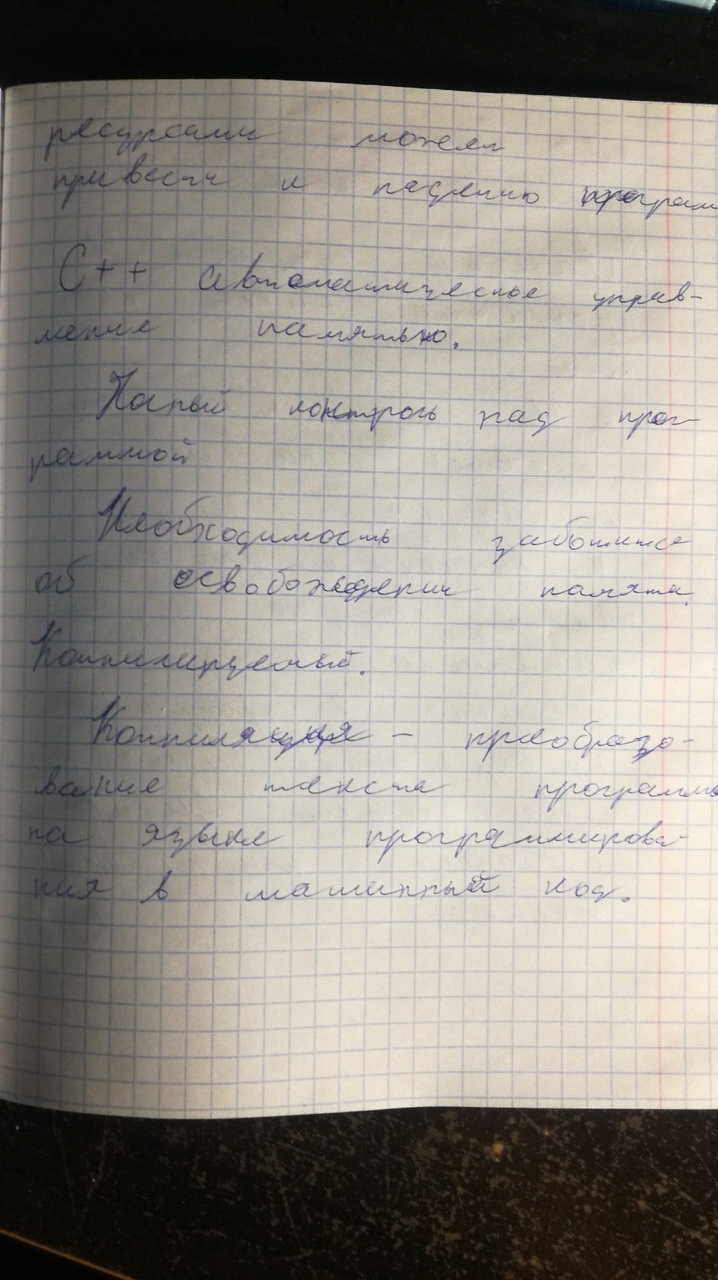 ресурсами может
привести к падению програм
С++ автоматическое управ-
ление памятью.
Полный контроль над прог-
раммой
Необходимость заботиться
об освобождении памяти.
Компилируемый.
Компиляция – преобразо-
вание текста программы
на языке программирова-
ния в машинный код.